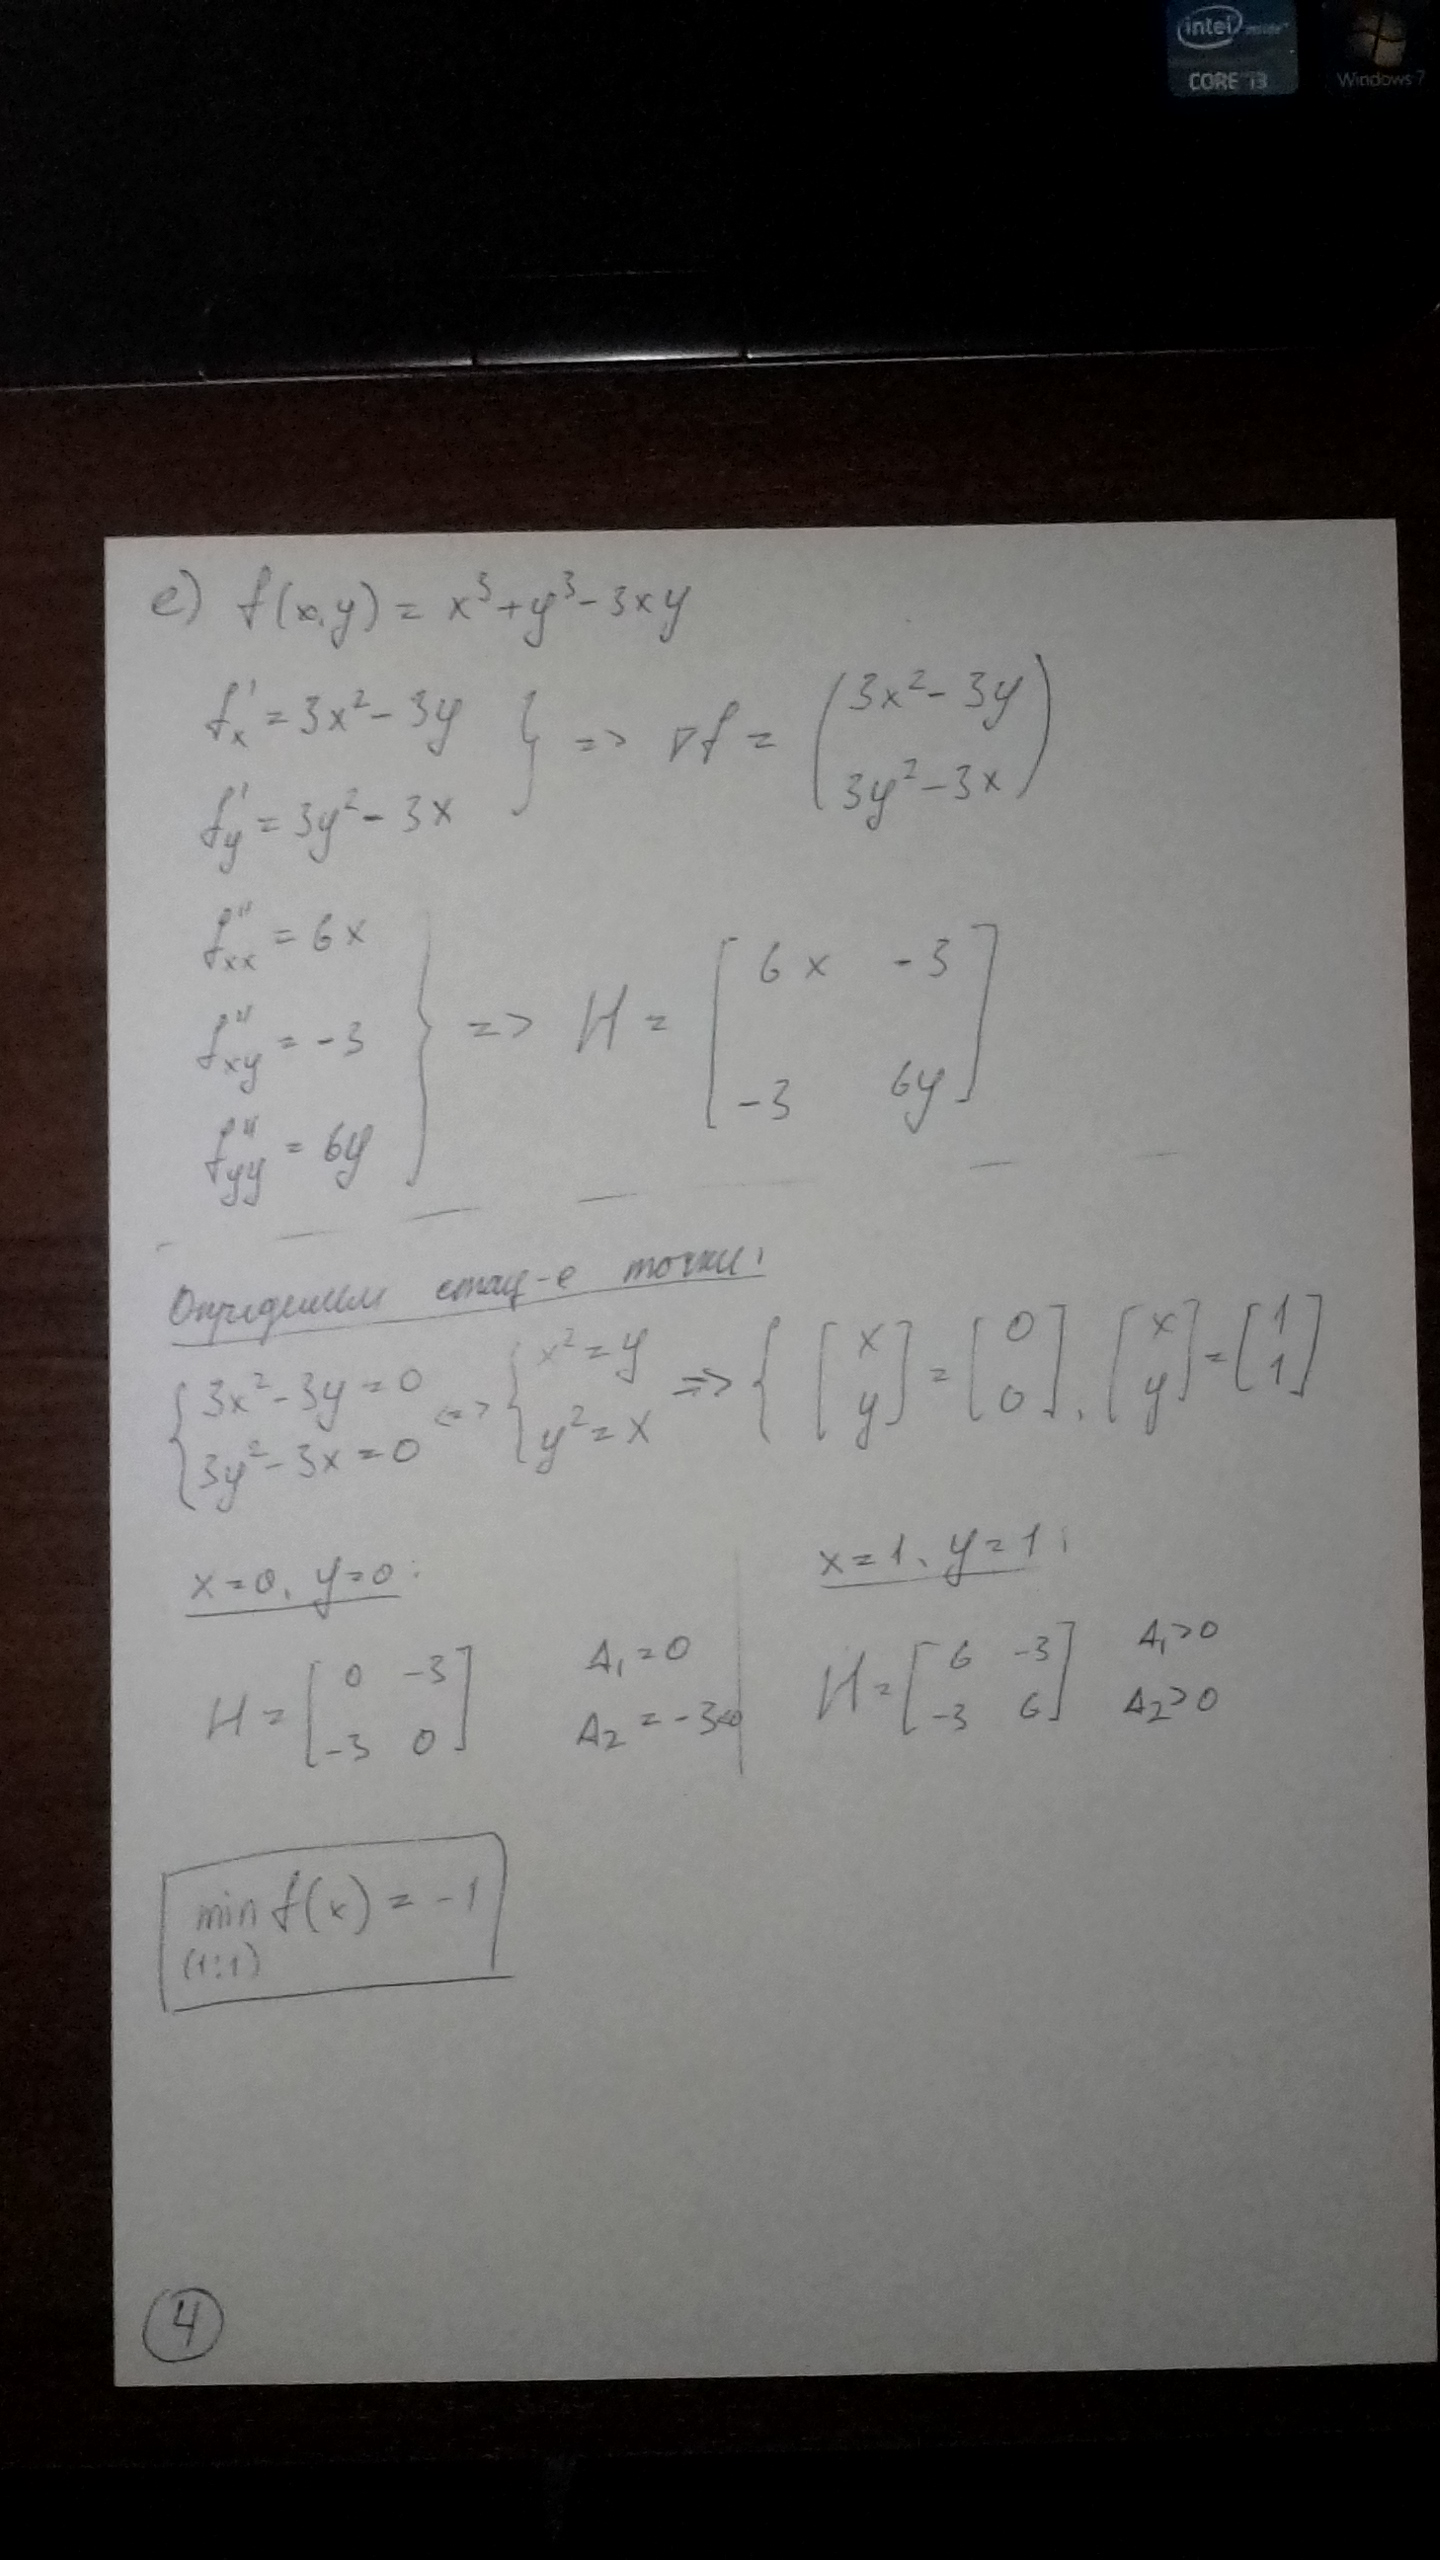 intel inside™
CORE i3
Windows 7
e) f(x,y) = x³+y³-3xy
f'x = 3x²-3y
f'y = 3y²-3x
} => ∇f = (3x²-3y
3y²-3x)
f''xx = 6x
f''xy = -3
f''yy = 6y
} => H = [6x -3
-3 6y]
Определим стац-е точки:
{3x²-3y=0
3y²-3x=0
<=> {x²=y
y²=x
=> { [x
y] = [0
0], [x
y] = [1
1]
x=0, y=0:
H = [0 -3
-3 0]
Δ₁=0
Δ₂=-3<0
x=1, y=1:
H = [6 -3
-3 6]
Δ₁>0
Δ₂>0
min f(x) = -1
(1;1)
4